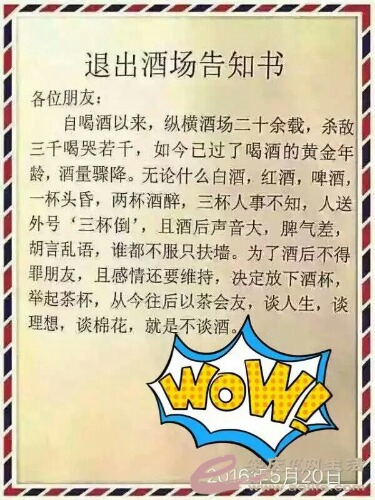 退出酒场告知书
各位朋友：
自喝酒以来，纵横酒场二十余载，杀敌
三千喝哭若干，如今已过了喝酒的黄金年
龄，酒量骤降。无论什么白酒，红酒，啤酒，
一杯头昏，两杯酒醉，三杯人事不知，人送
外号‘三杯倒’，且酒后声音大，脾气差，
胡言乱语，谁都不服只扶墙。为了酒后不得
罪朋友，且感情还要维持，决定放下酒杯，
举起茶杯，从今往后以茶会友，谈人生，谈
理想，谈棉花，就是不谈酒。
WOW!
2016年5月20日